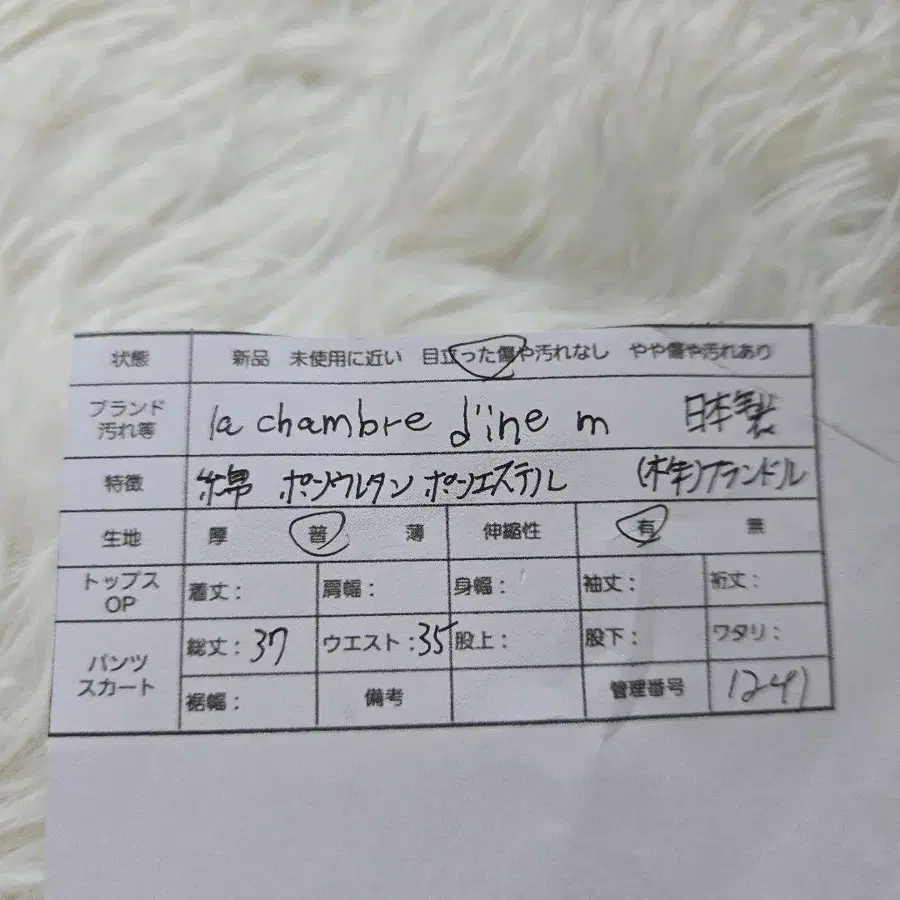 状態 新品 未使用に近い 目立った傷や汚れなし やや傷や汚れあり
ブランド 汚れ等 la chambre d'ine m 日本製
特徴 綿 ポリウルタン ポリエステル (株)フランドル
生地 厚 普 薄 伸縮性 有 無
トップス OP 着丈: 肩幅: 身幅: 袖丈: 裄丈:
パンツ スカート 総丈:37 ウエスト:35 股上: 股下: ワタリ:
裾幅: 備考 管理番号 1241